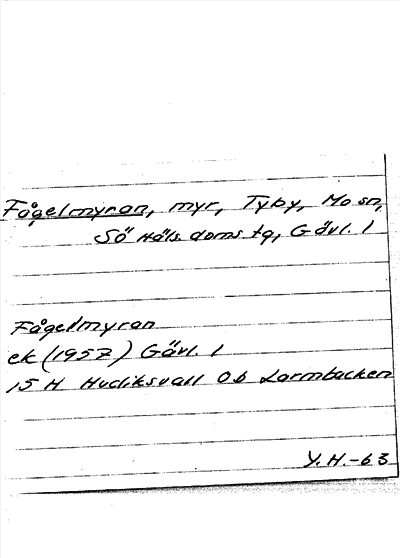 Fågelmyran, myr, Tyby, Mo sn,
Sö Häls. doms. tg, Gävl. l
Fågelmyran
ek (1957) Gävl. l
15 H Hudiksvall 0b Larmbacken
Y. H.-63